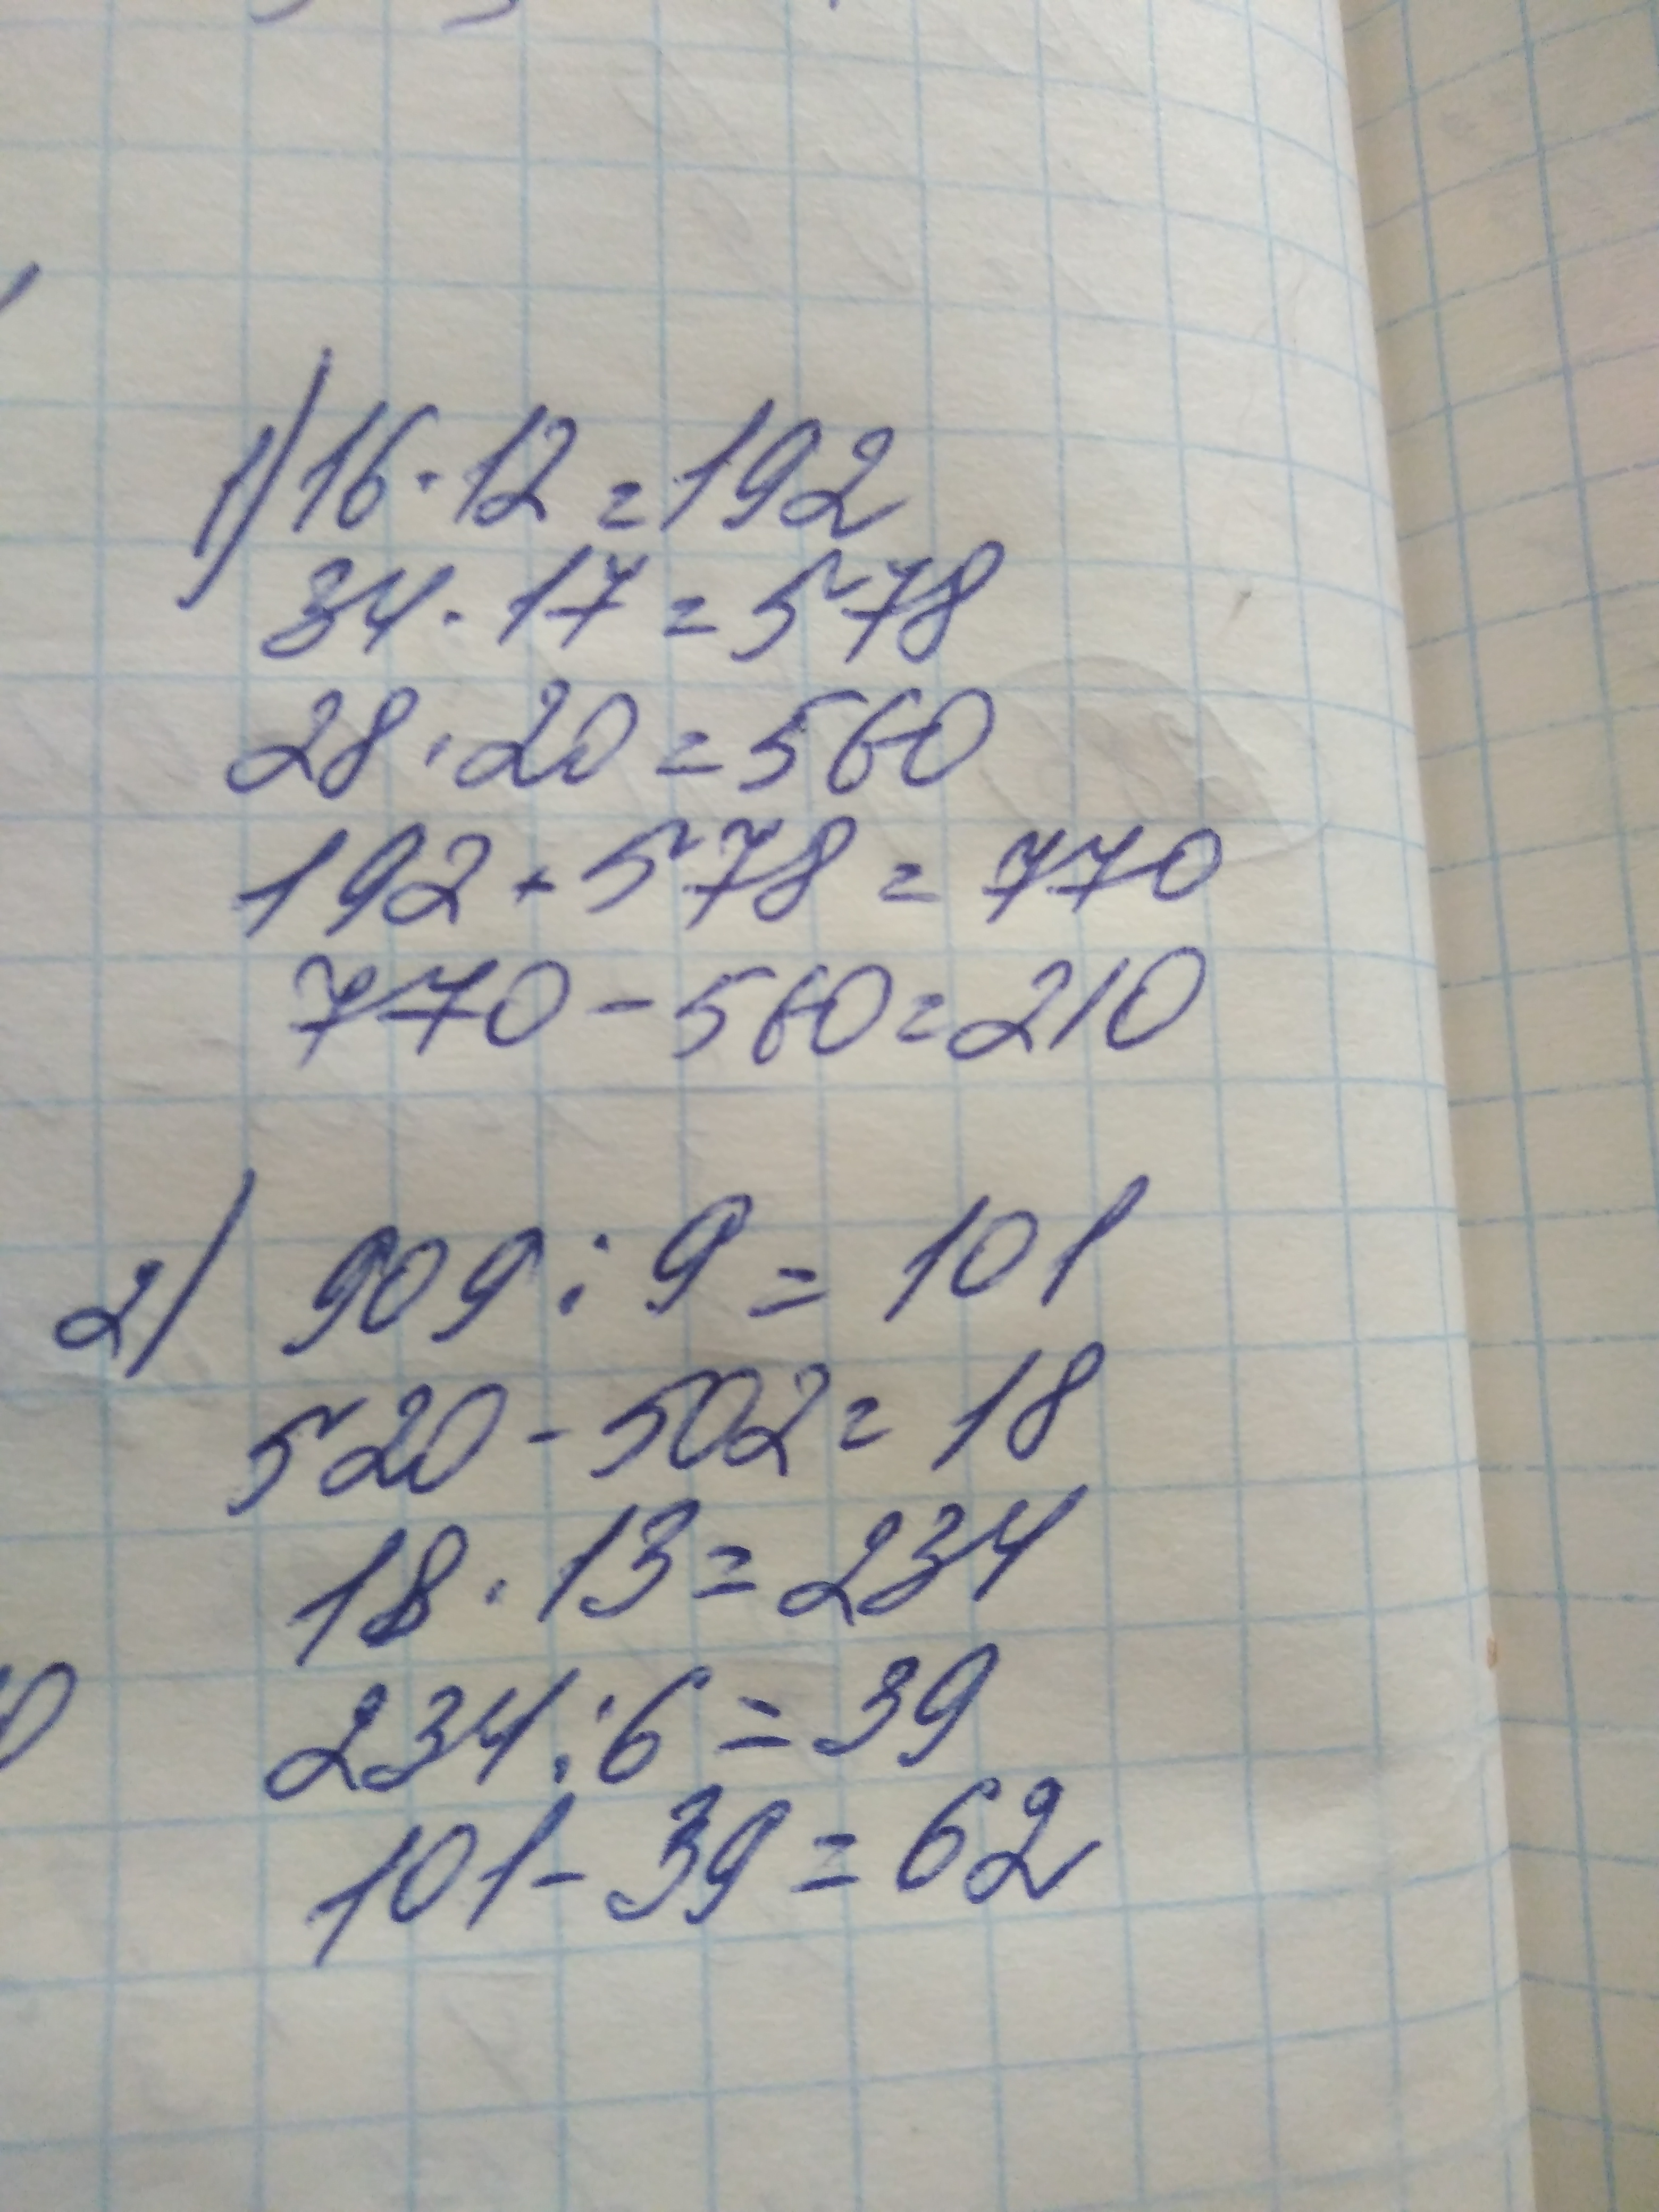 1) 16 · 12 = 192
34 · 17 = 578
28 · 20 = 560
192 + 578 = 770
770 - 560 = 210
2) 909 : 9 = 101
520 - 502 = 18
18 · 13 = 234
234 : 6 = 39
101 - 39 = 62